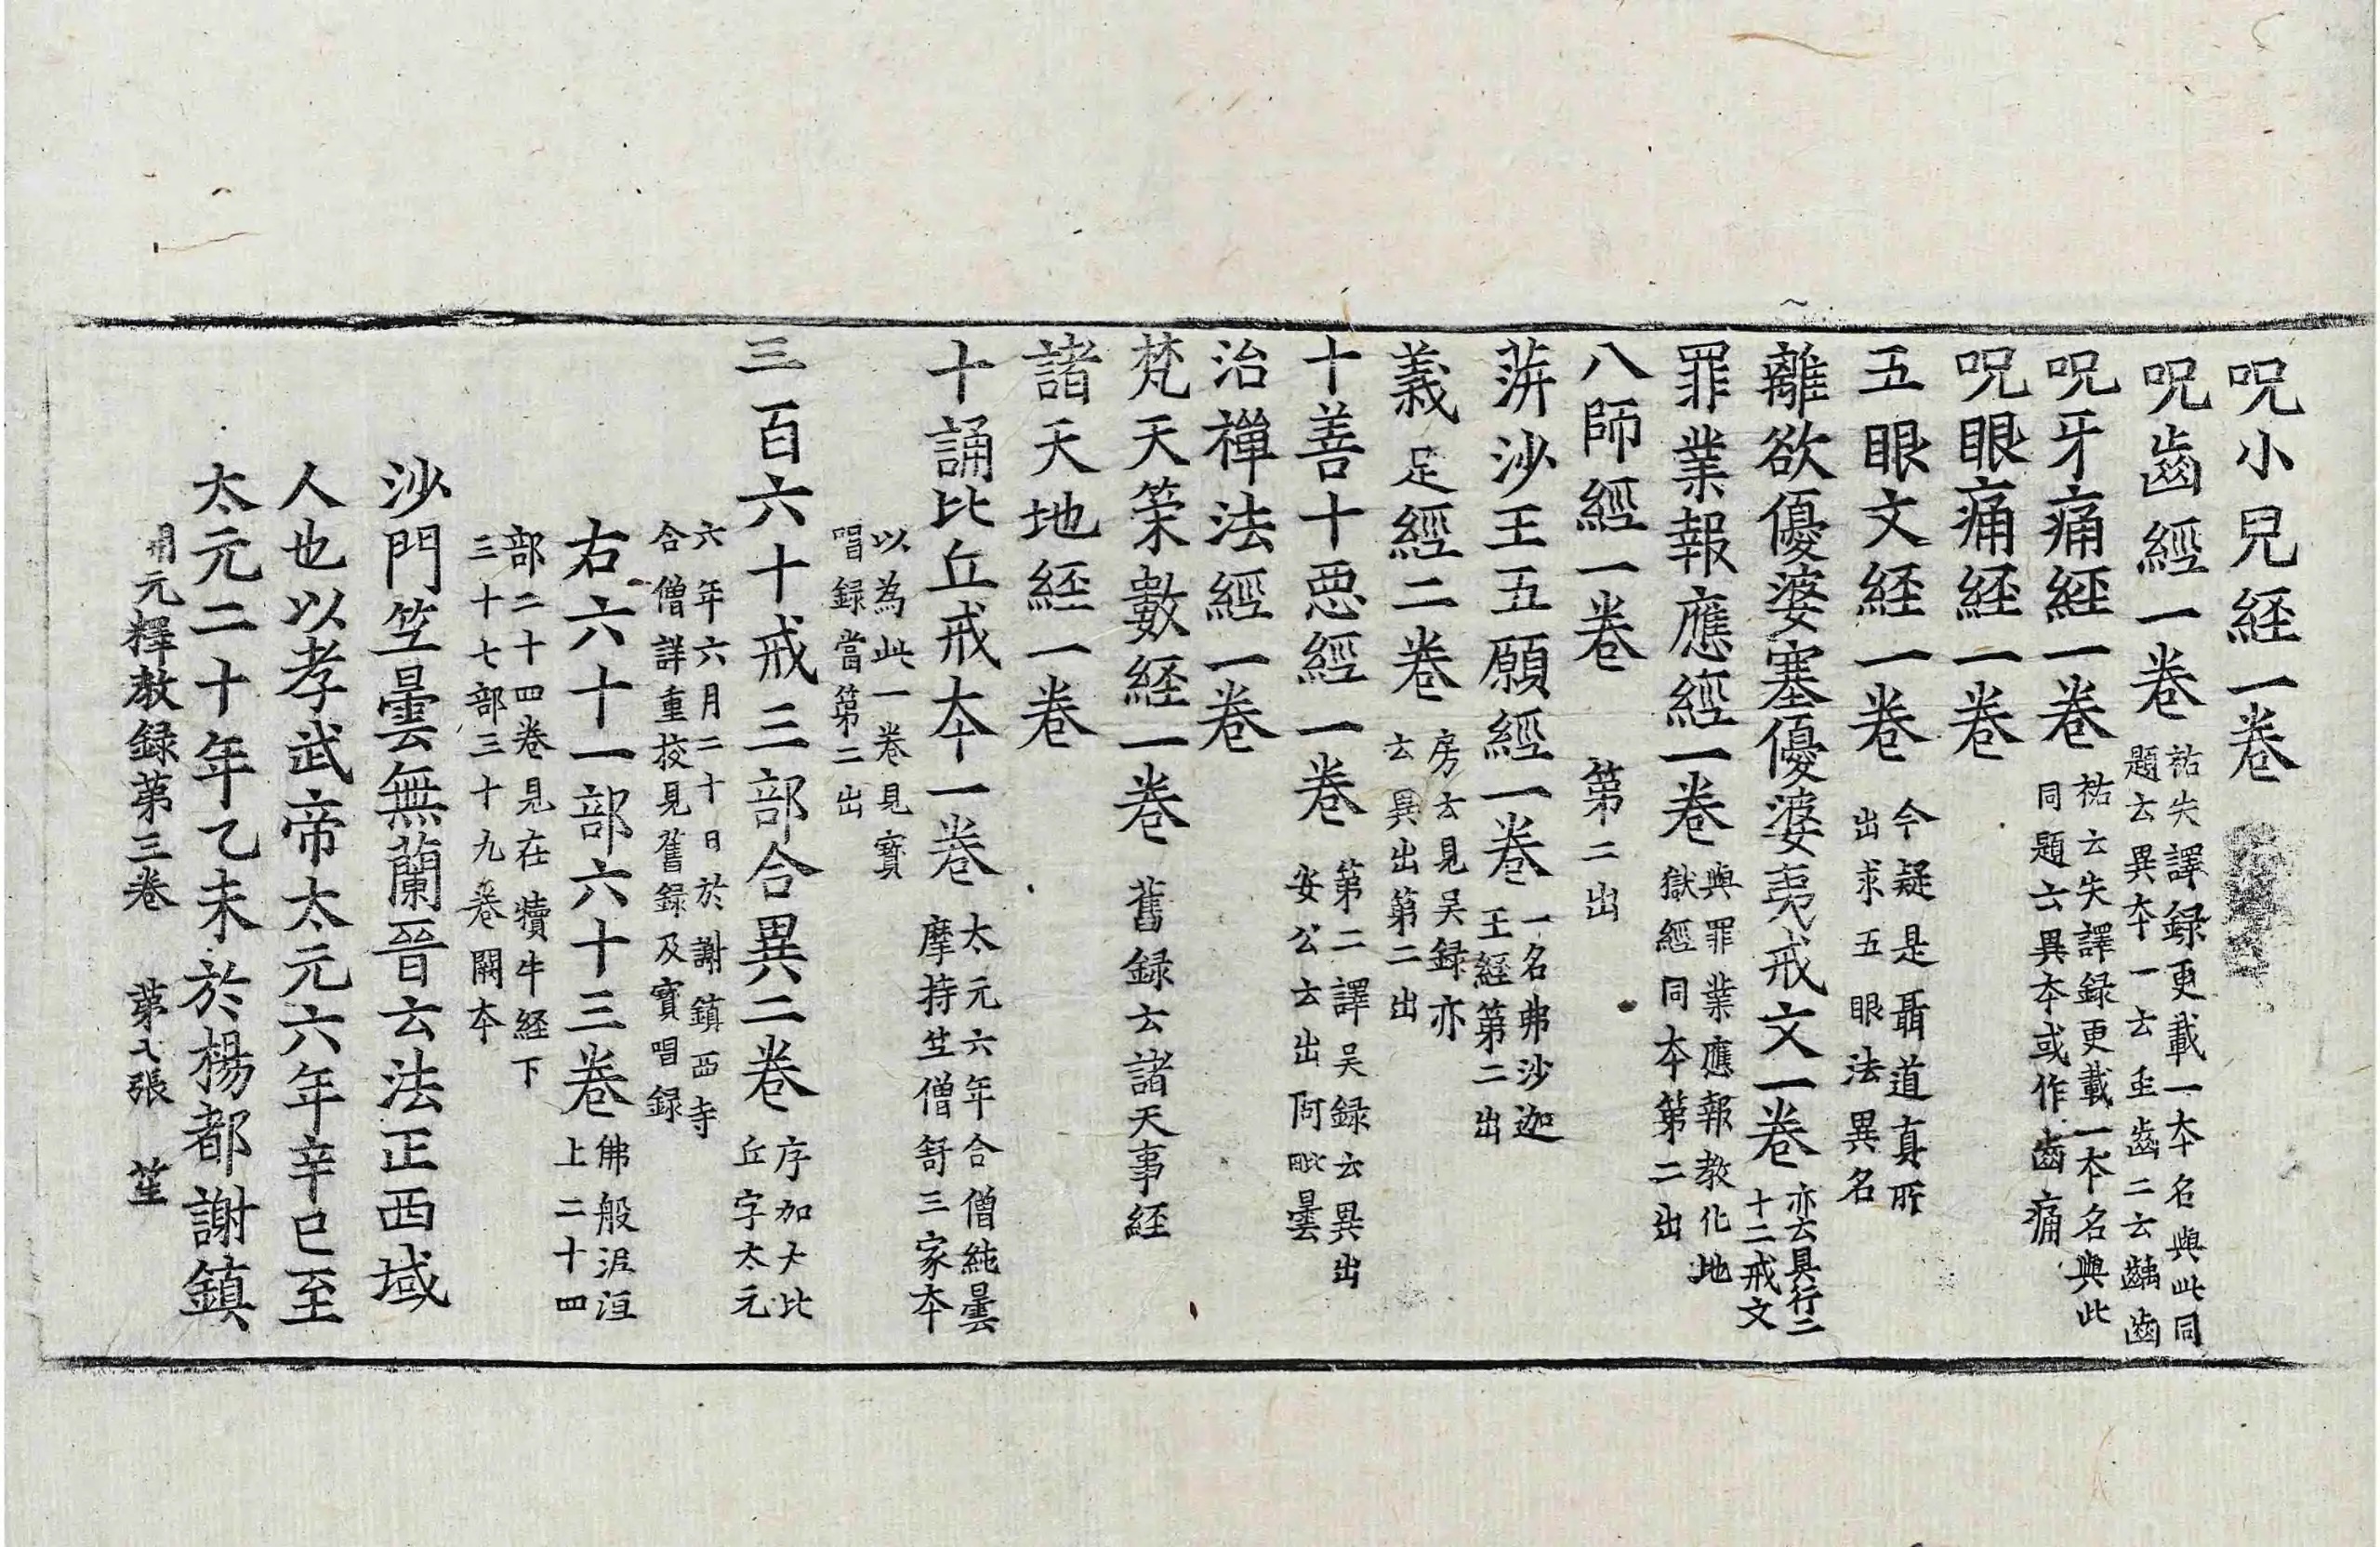 呪小兒経一卷
呪齒經一卷 祐失譯録更載一本名與此同
題云異本一云虫齒二云齲齒
呪牙痛經一卷 祐云失譯録更載一本名與此
同題云異本或作齒痛
呪眼痛経一卷
五眼文経一卷 今疑是聶道真所
出求五眼法異名
離欲優婆塞優婆夷戒文一卷 亦云具行二
十二戒文
罪業報應經一卷 與罪業應報教化地
獄經同本第二出
八師經一卷 第二出
蓱沙王五願經一卷 一名弗沙迦
王經第二出
義足經二卷 房云見吴録亦
云異出第二出
十善十惡經一卷 第二譯吴録云異出
安公云出阿毗曇
治禪法經一卷
梵天䇿數経一卷 舊録云諸天事経
諸天地経一卷
十誦比丘戒本一卷 太元六年合僧純曇
摩持竺僧舒三家本
以為此一卷見寳
唱録當第二出
三百六十戒三部合異二卷 序加大比
丘字太元
六年六月二十日於謝鎮西寺
合僧詳重挍見舊録及寳唱録
右六十一部六十三卷 佛般泥洹
上二十四
部二十四卷見在犢牛経下
三十七部三十九卷闕本
沙門竺曇無蘭晉云法正西域
人也以孝武帝太元六年辛巳至
太元二十年乙未於楊都謝鎮
開元釋教録苐三卷 苐八張 笙